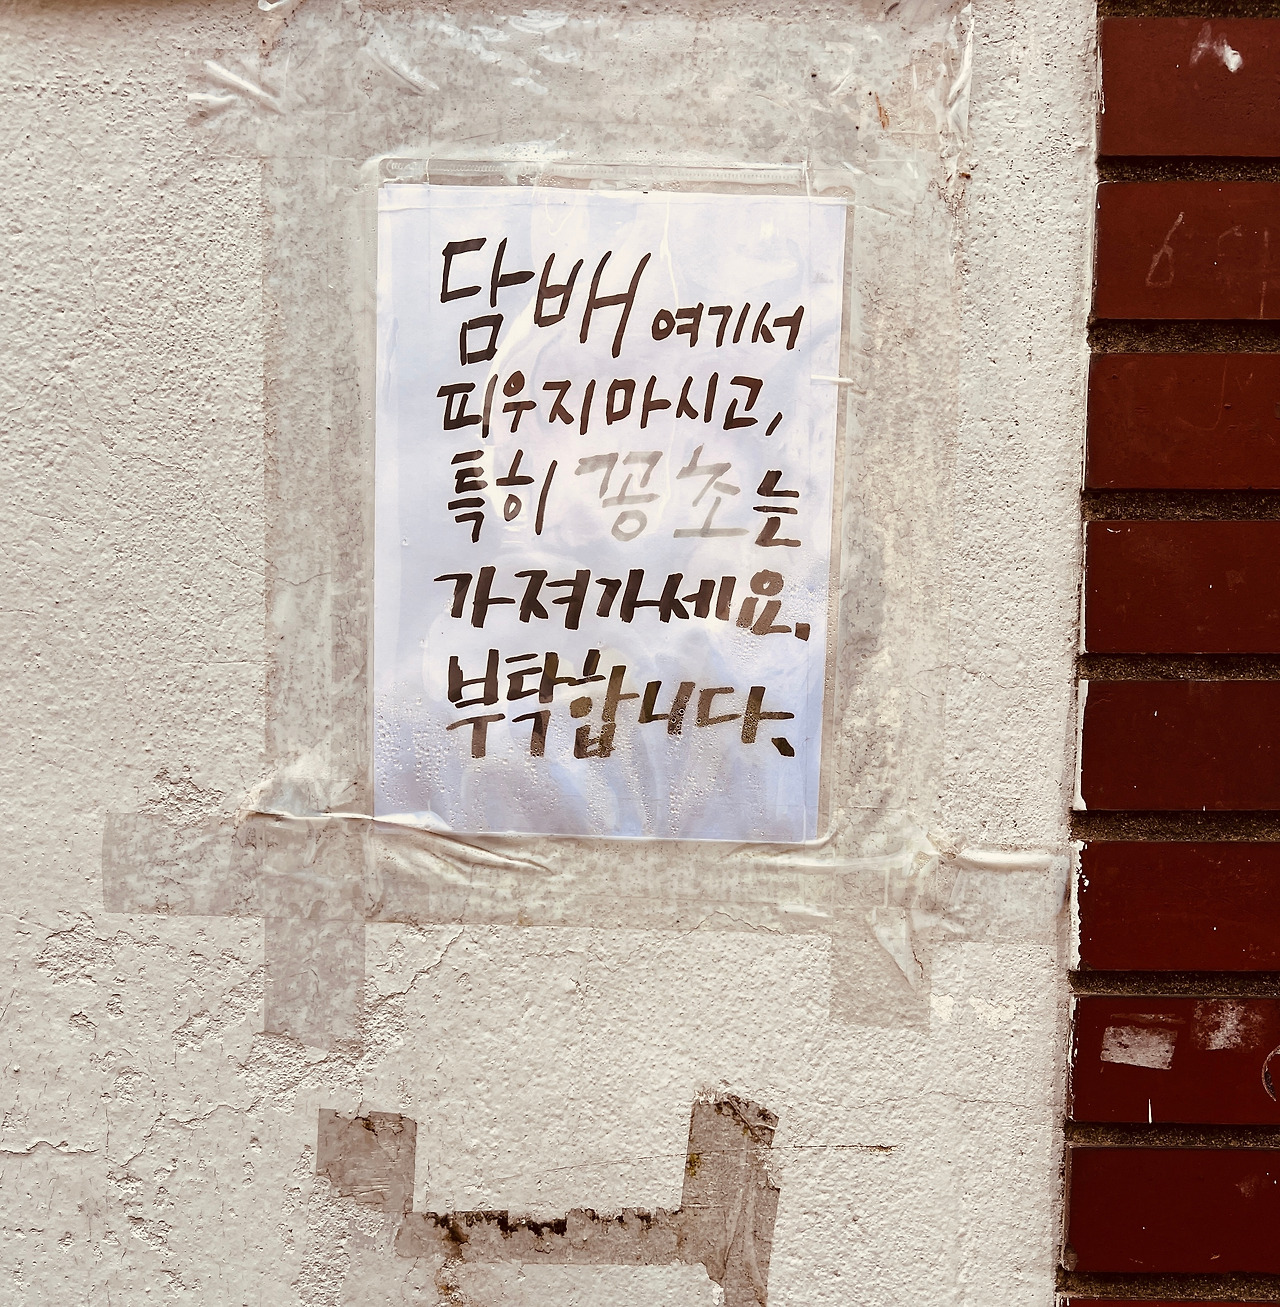 담배 여기서
피우지 마시고,
특히 꽁초는
가져가세요.
부탁합니다.